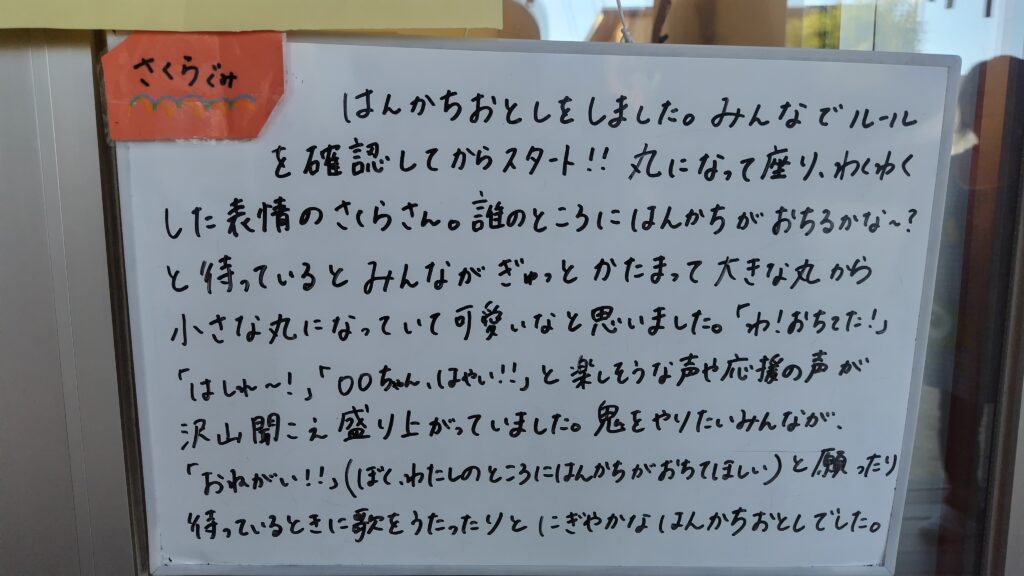 さくらぐみ
はんかちおとしをしました。みんなでルール
を確認してからスタート!! 丸になって座り、わくわく
した表情のさくらさん。誰のところにはんかちがおちるかな~?
と待っているとみんながぎゅっとかたまって大きな丸から
小さな丸になっていて可愛いなと思いました。「わ!おちてた!」
「はしれ~!」「〇〇ちゃん、はやい!!」と楽しそうな声や応援の声が
沢山聞こえ盛り上がっていました。鬼をやりたいみんなが、
「おねがい!!」(ぼく、わたしのところにはんかちがおちてほしい)と願ったり
待っているときに歌をうたったりとにぎやかなはんかちおとしでした。